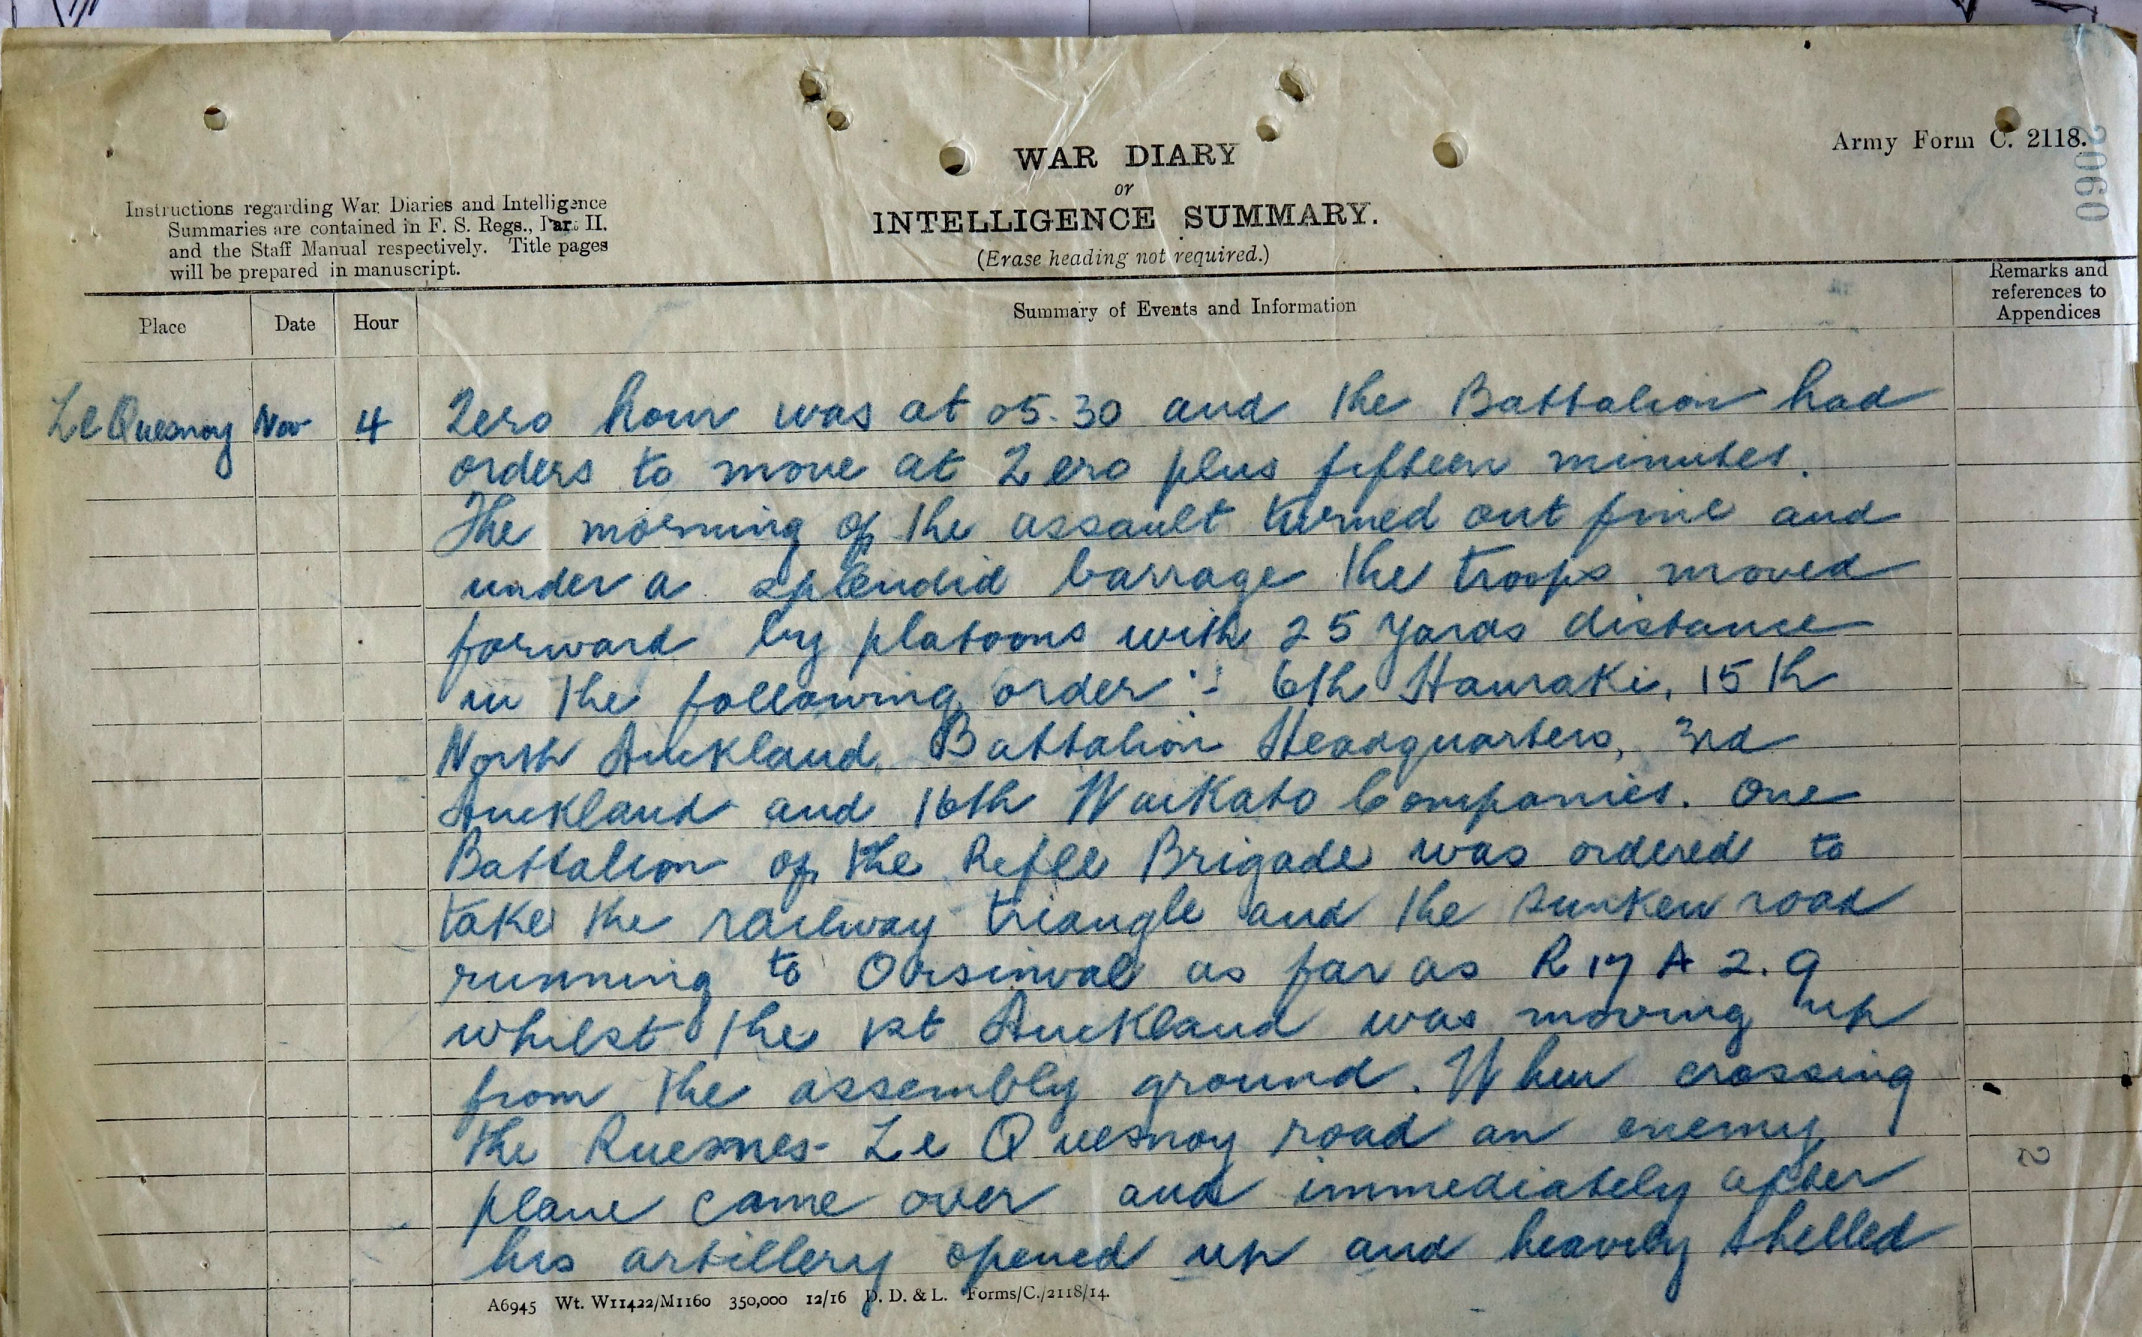 WAR DIARY
or
INTELLIGENCE SUMMARY.
(Erase heading not required.)
Army Form C. 2118.
2060
Instructions regarding War Diaries and Intelligence
Summaries are contained in F. S. Regs., Part II.
and the Staff Manual respectively. Title pages
will be prepared in manuscript.
Place Date Hour Summary of Events and Information Remarks and
references to
Appendices
Le Quesnoy Nov 4 Zero hour was at 05.30 and the Battalion had
orders to move at Zero plus fifteen minutes.
The morning of the assault turned out fine and
under a splendid barrage the troops moved
forward by platoons with 25 yards distance
in the following order :- 6th Hauraki, 15th
North Auckland, Battalion Headquarters, 3rd
Auckland and 16th Waikato Companies. One
Battalion of the Rifle Brigade was ordered to
take the railway triangle and the sunken road
running to Orsinval as far as R 17 A 2.9
whilst the 1st Auckland was moving up
from the assembly ground. When crossing
the Ruesnes-Le Quesnoy road an enemy
plane came over and immediately after
his artillery opened up and heavily shelled
A6945 Wt. W11422/M1160 350,000 12/16 D. D. & L. Forms/C./2118/14.